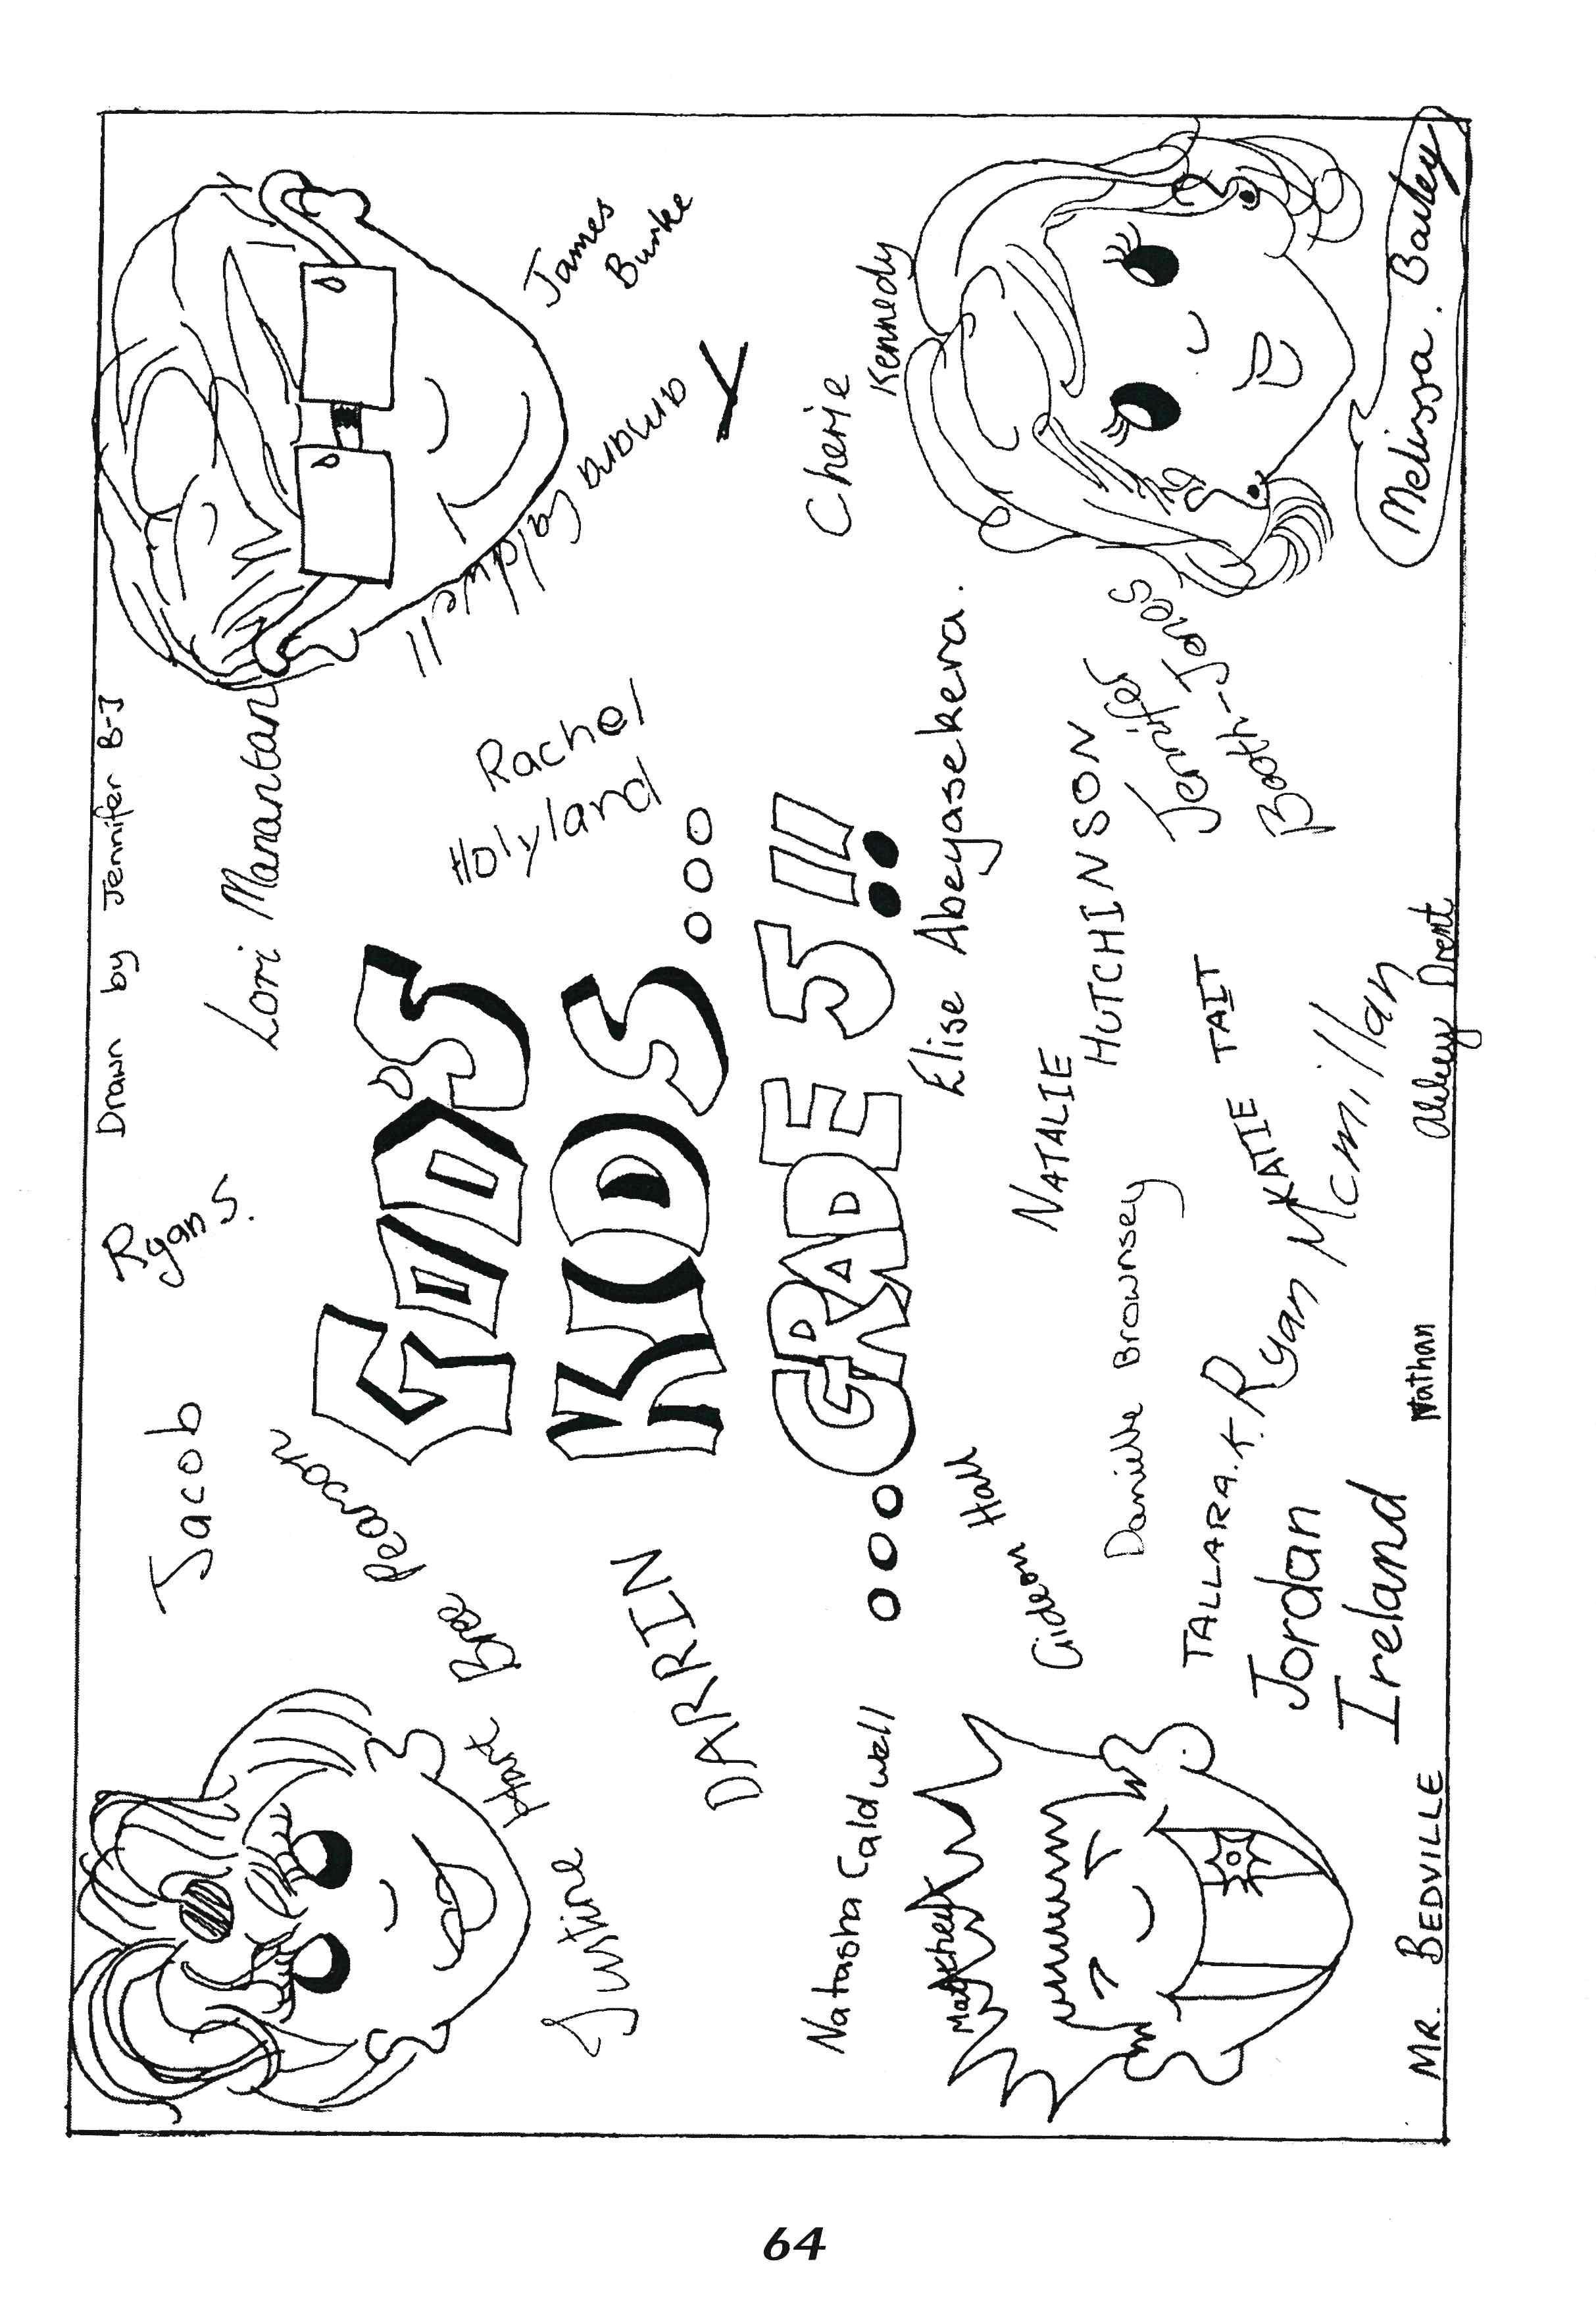 Drawn by Jennifer B-J
Ryan S.
Jacob
Lori Manantan
Bree Pearson
GOD'S
KIDS...
...GRADE 5!!
Rachel
Holyland
James
Burke
Justine Hart
DARRIN
Natasha Caldwell
Cherie
Kennedy
Elise Abeyasekera.
Gideon Hall
NATALIE
HUTCHINSON
Jennifer
Booth-Jones
Danielle Brownsey
TALLARA.K.
KATIE TAIT
Ryan Mcmillan
Jordan
Ireland
Nathan
Melissa. Bailey
MR. BEDVILLE
64